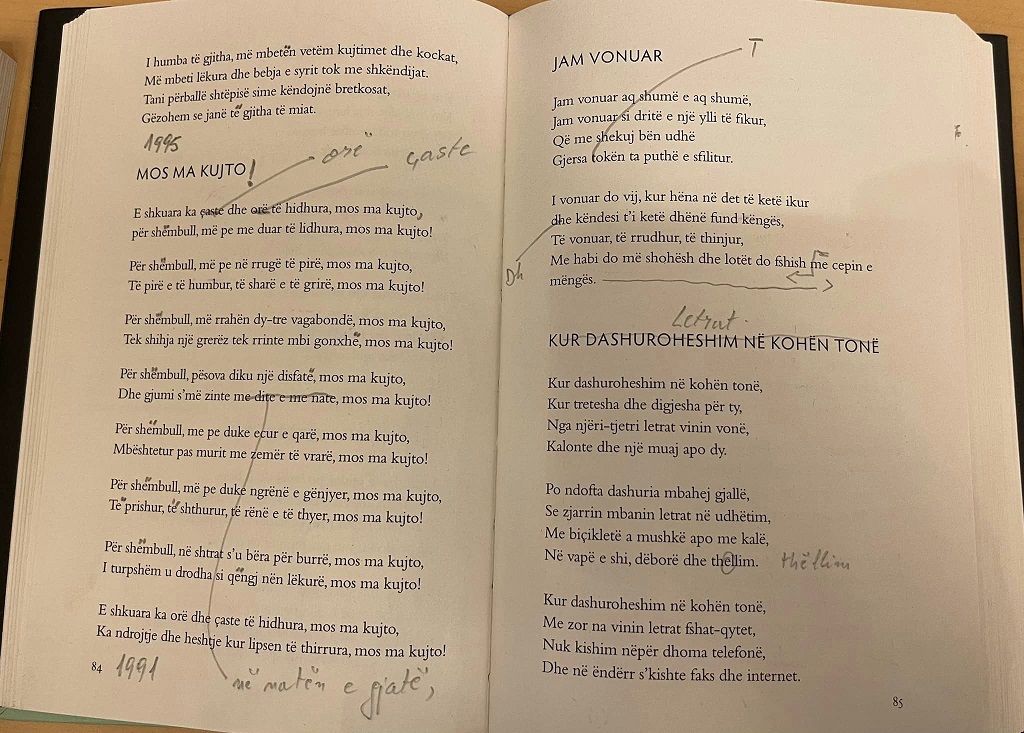 I humba të gjitha, më mbetën vetëm kujtimet dhe kockat,
Më mbeti lëkura dhe bebja e syrit tok me shkëndijat.
Tani përballë shtëpisë sime këndojnë bretkosat,
Gëzohem se janë të gjitha të miat.
1995
MOS MA KUJTO!
orë
çaste
E shkuara ka çaste dhe orë të hidhura, mos ma kujto,
për shëmbull, më pe me duar të lidhura, mos ma kujto!
Për shëmbull, më pe në rrugë të pirë, mos ma kujto,
Të pirë e të humbur, të sharë e të grirë, mos ma kujto!
Për shëmbull, më rrahën dy-tre vagabondë, mos ma kujto,
Tek shihja një grerëz tek rrinte mbi gonxhë, mos ma kujto!
Për shëmbull, pësova diku një disfatë, mos ma kujto,
Dhe gjumi s'më zinte me dite e me nate, mos ma kujto!
Për shëmbull, me pe duke ecur e qarë, mos ma kujto,
Mbështetur pas murit me zemër të vrarë, mos ma kujto!
Për shëmbull, më pe duke ngrënë e gënjyer, mos ma kujto,
Të prishur, të shthurur, të rënë e të thyer, mos ma kujto!
Për shëmbull, në shtrat s'u bëra për burrë, mos ma kujto,
I turpshëm u drodha si qëngj nën lëkurë, mos ma kujto!
E shkuara ka orë dhe çaste të hidhura, mos ma kujto,
Ka ndrojtje dhe heshtje kur lipsen të thirrura, mos ma kujto!
84
1991
në natën e gjatë,
JAM VONUAR
T
Jam vonuar aq shumë e aq shumë,
Jam vonuar si dritë e një ylli të fikur,
Që me shekuj bën udhë
Gjersa tokën ta puthë e sfilitur.
I vonuar do vij, kur hëna në det të ketë ikur
dhe këndesi t'i ketë dhënë fund këngës,
Të vonuar, të rrudhur, të thinjur,
Me habi do më shohësh dhe lotët do fshish me cepin e
mëngës.
Dh
Letrat
KUR DASHUROHESHIM NË KOHËN TONË
Kur dashuroheshim në kohën tonë,
Kur tretesha dhe digjesha për ty,
Nga njëri-tjetri letrat vinin vonë,
Kalonte dhe një muaj apo dy.
Po ndofta dashuria mbahej gjallë,
Se zjarrin mbanin letrat në udhëtim,
Me biçikletë a mushkë apo me kalë,
Në vapë e shi, dëborë dhe thellim.
thëllim
Kur dashuroheshim në kohën tonë,
Me zor na vinin letrat fshat-qytet,
Nuk kishim nëpër dhoma telefonë,
Dhe në ëndërr s'kishte faks dhe internet.
85